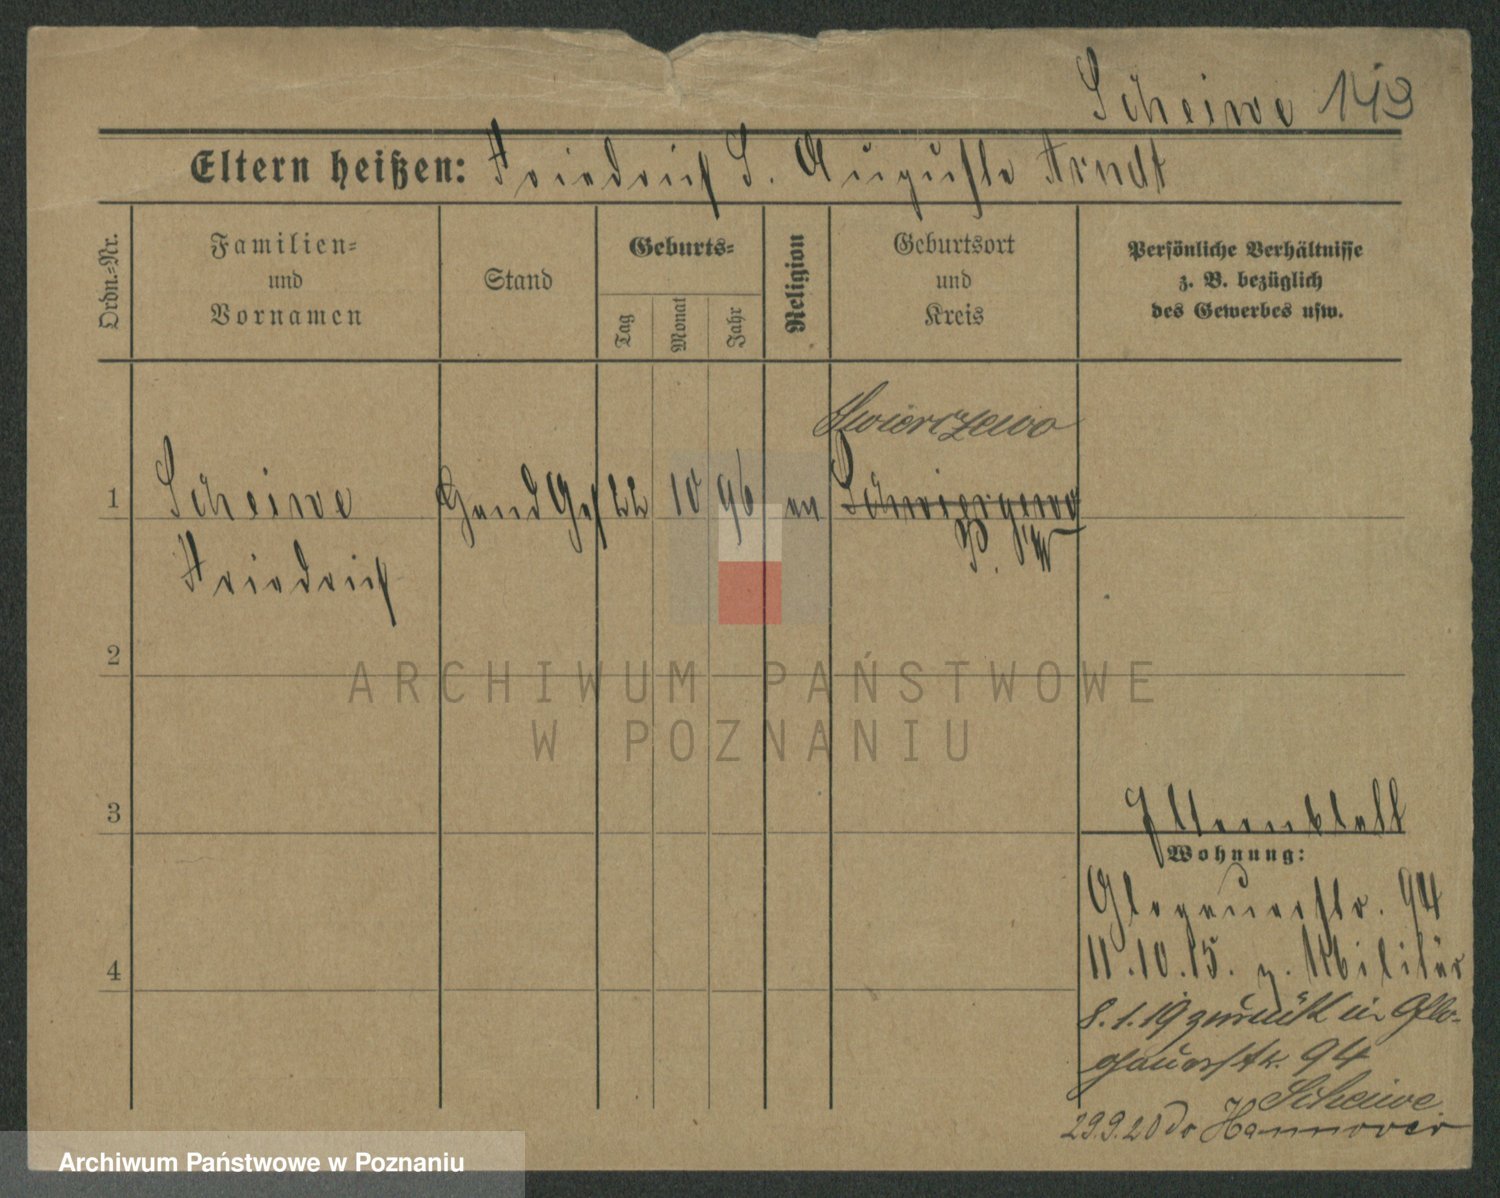 Scheiwe 143
Eltern heißen: Friedrich S. Auguste Arndt
Ordn.-Nr.
Familien-
und
Vornamen
Stand
Geburts-
Tag
Monat
Jahr
Religion
Geburtsort
und
Kreis
Persönliche Verhältnisse
z. B. bezüglich
des Gewerbes usw.
Swierczewo
1 Scheiwe Hand Gef 22 10 96 ev
P. W
Friedrich
2
ARCHIWUM PAŃSTWOWE
W POZNANIU
3
Wohnung:
Glogauerstr. 94
11.10.15. z. Militär
4
8.1.19 zurück in Glo-
gauerstr. 94
Scheiwe
29.9.20 Hannover
Archiwum Państwowe w Poznaniu